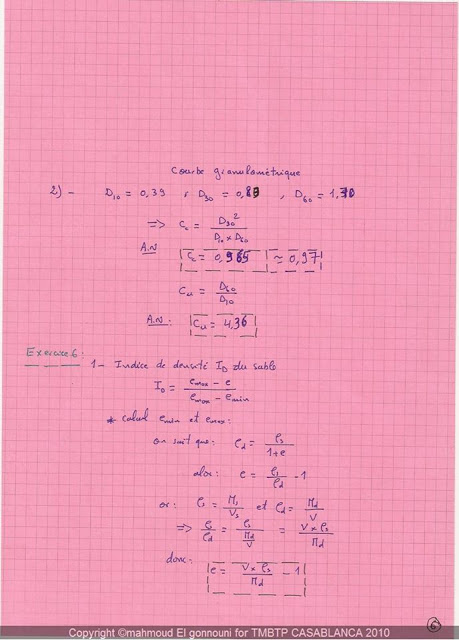 Courbe granulométrique
2) - D10 = 0,39 , D30 = 0,83 , D60 = 1,70
=> Cc = D30² / (D10 x D60)
A.N Cc = 0,965 ≃ 0,97
Cu = D60 / D10
A.N: Cu = 4,36
Exercice 6:
1 - Indice de densité ID du sable
ID = (emax - e) / (emax - emin)
* calcul emin et emax:
on sait que: ρd = ρs / (1+e)
alor: e = ρs/ρd - 1
or: ρs = Ms/Vs et ρd = Md/V
=> ρs/ρd = ρs / (Md/V) = (V x ρs) / Md
donc: e = (V x ρs) / Md - 1
6
Copyright ©mahmoud El gonnouni for TMBTP CASABLANCA 2010